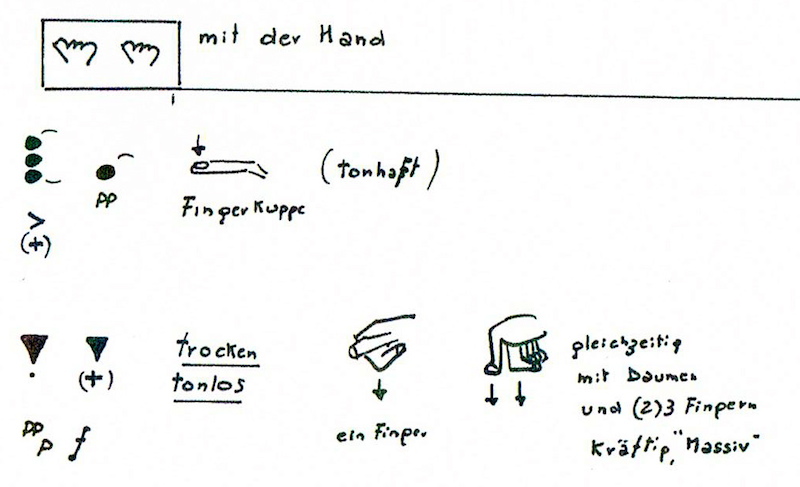 mit der Hand
pp
(tonhaft)
Fingerkuppe
>
(+)
trocken
tonlos
(+)
pp
p f
ein Finger
gleichzeitig
mit Daumen
und (2)3 Fingern
Kräftig, "Massiv"